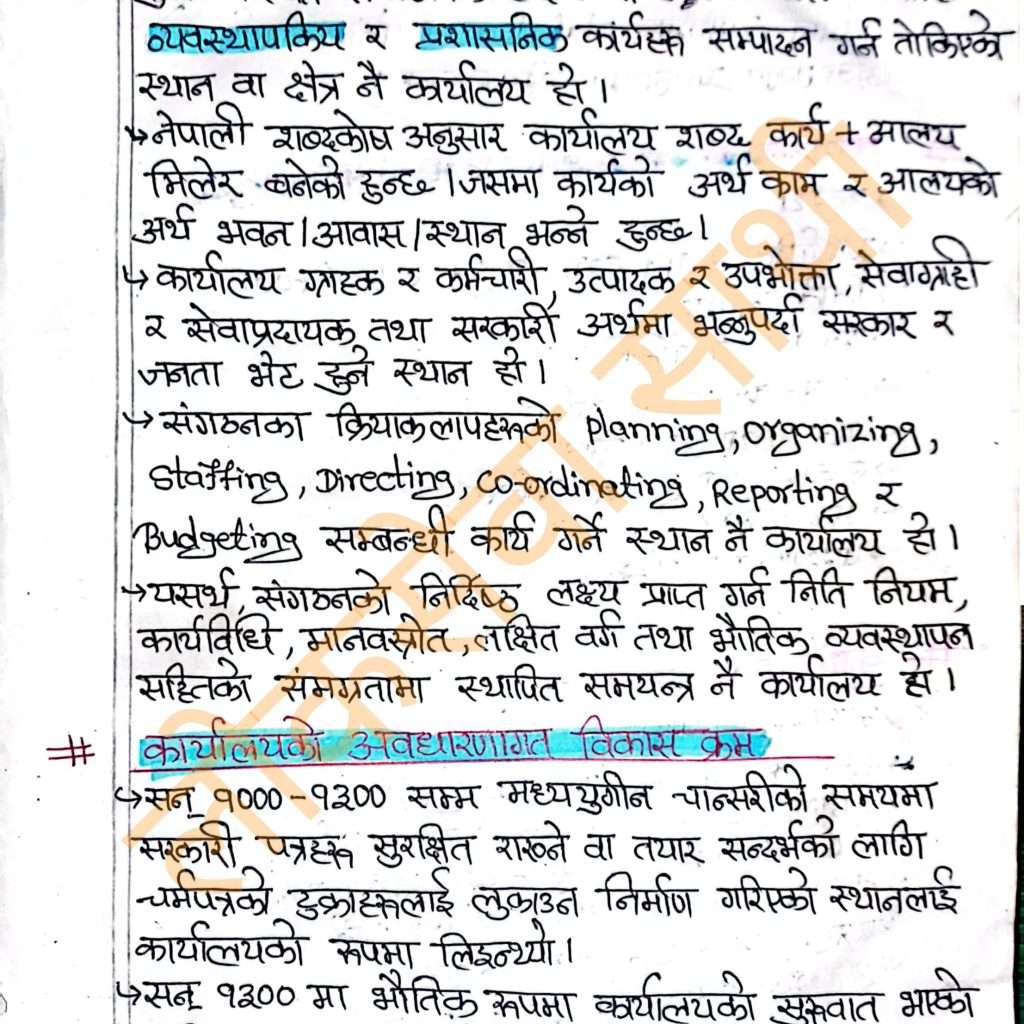 व्यवस्थापकिय र प्रशासनिक कार्यहरू सम्पादन गर्न तोकिएको
स्थान वा क्षेत्र नै कार्यालय हो ।
↳ नेपाली शब्दकोष अनुसार कार्यालय शब्द कार्य + मालय
मिलेर बनेको हुन्छ । जसमा कार्यको अर्थ काम र आलयको
अर्थ भवन/आवास/स्थान भन्ने हुन्छ ।
↳ कार्यालय ग्राहक र कर्मचारी, उत्पादक र उपभोक्ता, सेवाग्राही
र सेवाप्रदायक तथा सरकारी अर्थमा भन्नुपर्दा सरकार र
जनता भेट हुने स्थान हो ।
↳ संगठनका क्रियाकलापहरूको planning, organizing,
Staffing, Directing, Co-ordinating, Reporting र
Budgeting सम्बन्धी कार्य गर्ने स्थान नै कार्यालय हो ।
↳ यसर्थ, संगठनको निर्दिष्ठ लक्ष्य प्राप्त गर्न निति नियम,
कार्यविधि, मानवस्रोत, लक्षित वर्ग तथा भौतिक व्यवस्थापन
सहितको संमग्रतामा स्थापित समयन्त्र नै कार्यालय हो ।
# कार्यालयको अवधारणागत विकास क्रम
↳ सन् १०००-१३०० सम्म मध्ययुगीन चान्सरीको समयमा
सरकारी पत्रहरू सुरक्षित राख्ने वा तयार सन्दर्भको लागि
चर्मपत्रको टुक्राहरूलाई लुकाउन निर्माण गरिएको स्थानलाई
कार्यालयको रूपमा लिइन्थ्यो ।
↳ सन् १३०० मा भौतिक रूपमा कार्यालयको सुरुवात भएको
लोकसेवा साथी